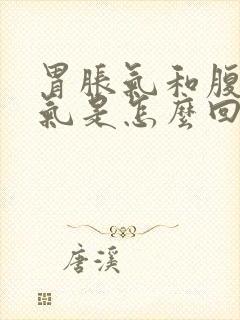 胃脹氣和腹
氣是怎麼回
唐溪